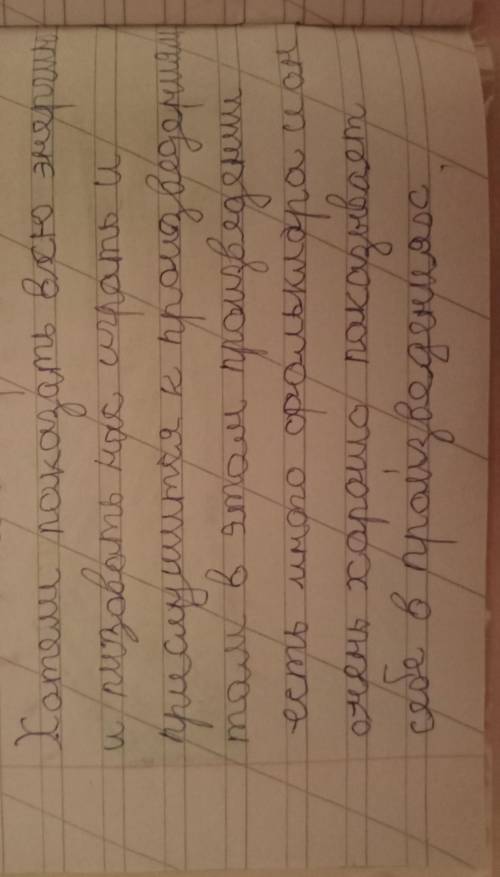 Хотели показать всю энергию
и низовать нас играть и
прислушится к произведениям
там в этом произведении
есть много фольклора и он
очень хорошо показывает
себе в произведениях